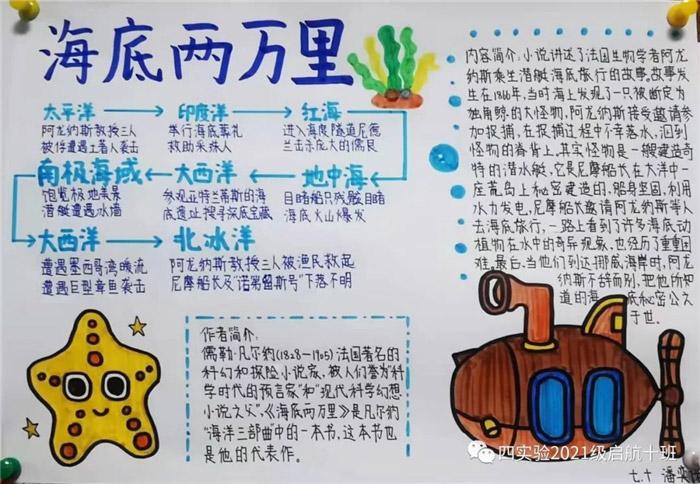 海底两万里
太平洋 印度洋 红海
阿龙纳斯教授三人
被俘遭遇土著人袭击
举行海底葬礼
救助采珠人
进入海奥隧道尼德
兰击杀庞大的儒艮
南极海域 大西洋 地中海
饱览极地美景
潜艇遭遇冰墙
参观亚特兰蒂斯的海
底遗址搜寻深底宝藏
目睹船只残骸目睹
海底火山爆发
大西洋 北冰洋
遭遇墨西哥湾暖流
遭遇巨型章鱼袭击
阿龙纳斯教授三人被渔民救起
尼摩船长及“诺第留斯号”下落不明
内容简介:小说讲述了法国生物学者阿龙
纳斯乘坐潜艇海底旅行的故事。故事发
生在1866年,当时海上发现了一只被断定为
独角鲸的大怪物,阿龙纳斯接受邀请参
加捉捕,在捉捕过程中不幸落水,泅到
怪物的脊背上。其实怪物是一艘建造奇
特的潜水艇,它是尼摩船长在大洋中一
座荒岛上秘密建造的,船身坚固,利用
水力发电,尼摩船长邀请阿龙纳斯等人
去海底旅行,一路上看到了许多海底动
植物在水中的奇异景象,也经历了重重困
难。最后,当他们到达挪威海岸时,阿龙
纳斯不辞而别,把他所知
道的海底秘密公大
于世。
作者简介:
儒勒·凡尔纳(1828—1905)法国著名的
科幻和探险小说家,被人们誉为“科
学时代的预言家”和“现代科学幻想
小说之父”,《海底两万里》是凡尔纳
“海洋三部曲”中的一本书,这本书也
是他的代表作。
四实验2021级启航十班
七.十 潘奕